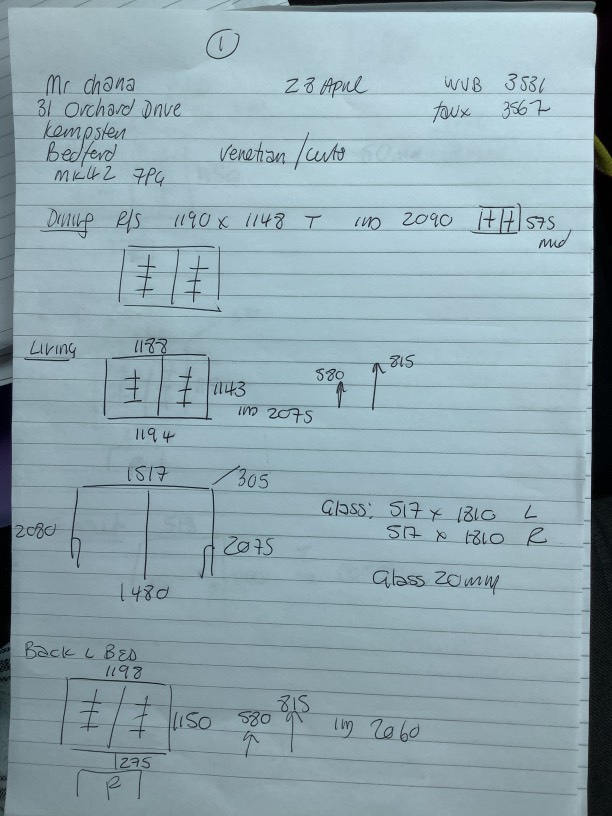 1
Mr chana 28 April WVB 3531
31 Orchard Drive faux 3567
Kempsten
Bedford Venetian / auto
MK42 7PG
Dining R/S 1190 x 1148 T 2090 575
mid
Living
1188
1143
2075
1194
580 815
1517 305
2080 2075
1480
Glass: 517 x 1810 L
517 x 1810 R
Glass 20mm
Back L BED
1198
1150 580 815 2060
1275
R